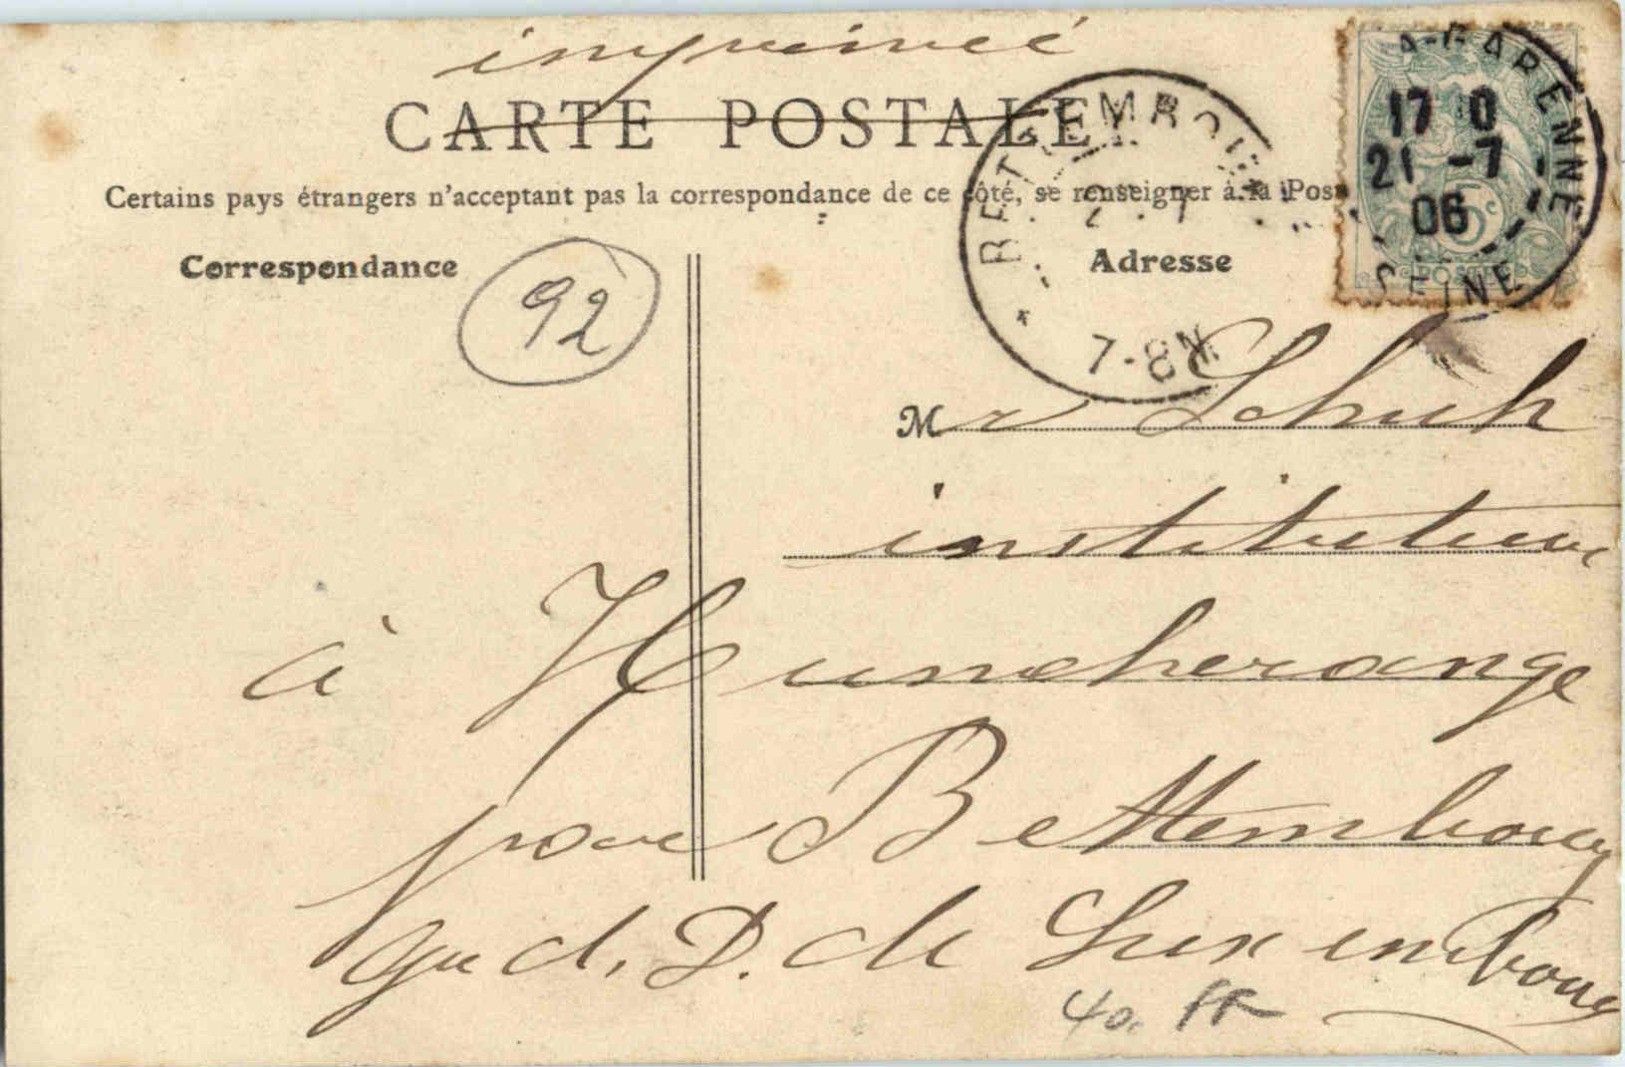 imprimé
CARTE POSTALE
Certains pays étrangers n'acceptant pas la correspondance de ce côté, se renseigner à la Pos
Correspondance
92
Adresse
BETTEMBOURG
7-8N
LA-GARENNE
17 0
21 -7
06
SEINE
5c
POSTES
Mr Schuh
instituteur
à Huncherange
pour Bettembourg
Gd. D. de Luxembourg
40. FF